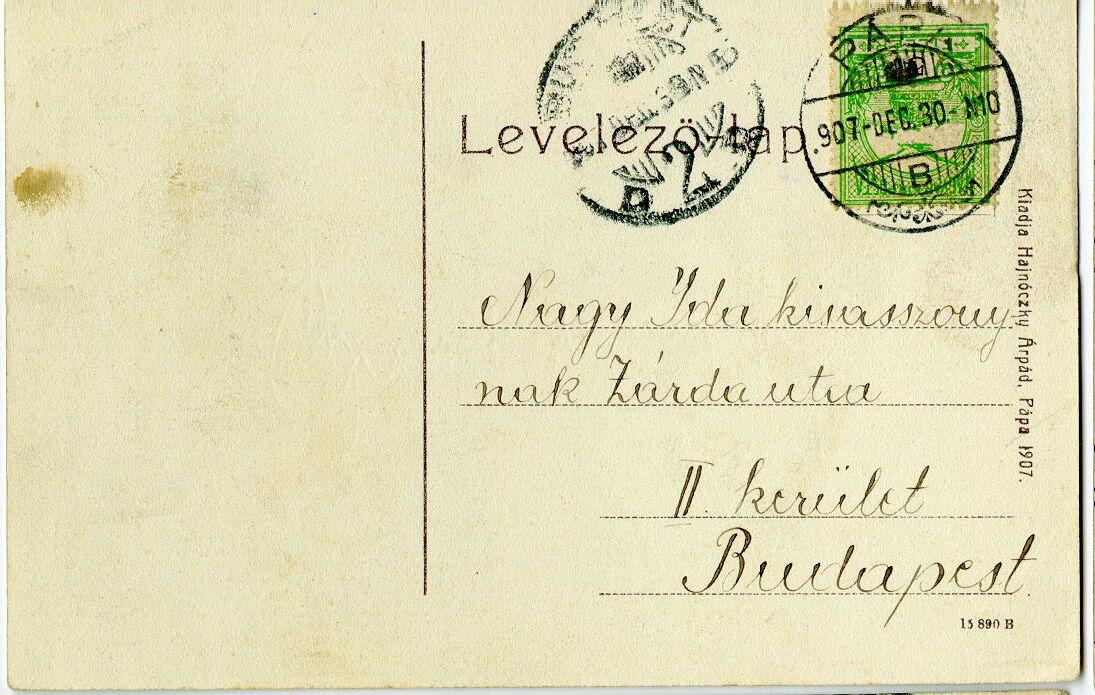 Levelező-lap.
PÁPA
907-DEC. 30.-N10
B
BUDAPEST
D 2
Nagy Ida kisasszony-
nak Zárda utca
II. kerület
Budapest.
Kiadja Hajnóczky Árpád, Pápa 1907.
15 890 B